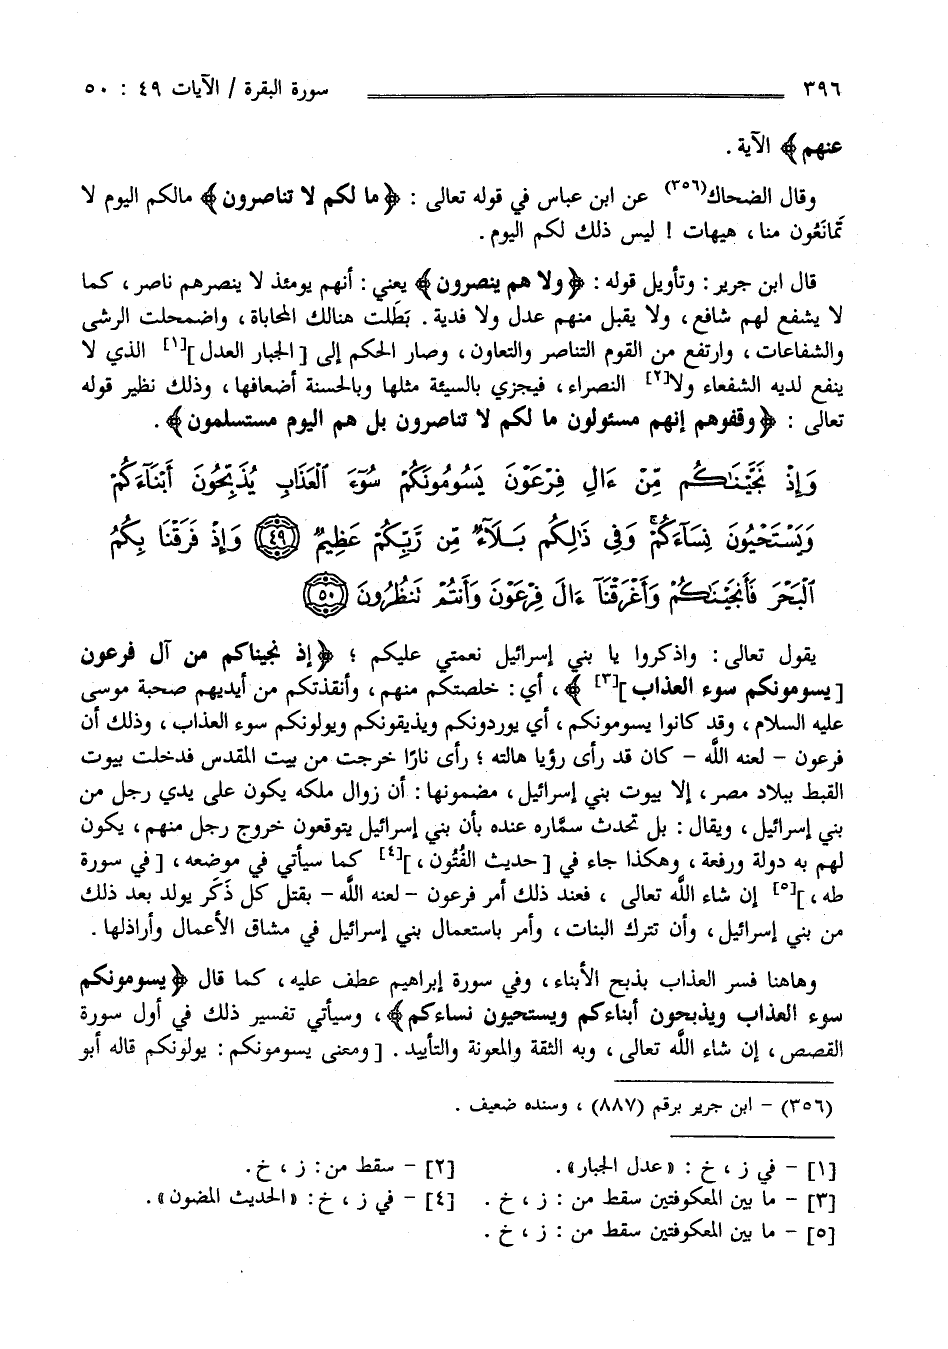 ٣٩٦ سورة البقرة / الآيات ٤٩ : ٥٠
عنهم﴾ الآية .
وقال الضحاك(٣٥٦) عن ابن عباس في قوله تعالى : ﴿ما لكم لا تناصرون﴾ مالكم اليوم لا
تَمانَعُون منا، هيهات ! ليس ذلك لكم اليوم.
قال ابن جرير: وتأويل قوله: ﴿ولا هم ينصرون﴾ يعني: أنهم يومئذ لا ينصرهم ناصر، كما
لا يشفع لهم شافع، ولا يقبل منهم عدل ولا فدية. بَطَلت هنالك المحاباة، واضمحلت الرشى
والشفاعات، وارتفع من القوم التناصر والتعاون، وصار الحكم إلى [الجبار العدل][١] الذي لا
ينفع لديه الشفعاء ولا[٢] النصراء، فيجزي بالسيئة مثلها وبالحسنة أضعافها، وذلك نظير قوله
تعالى : ﴿وقفوهم إنهم مسئولون ما لكم لا تناصرون بل هم اليوم مستسلمون﴾.
وَإِذْ نَجَّيْنَاكُم مِّنْ ءَالِ فِرْعَوْنَ يَسُومُونَكُمْ سُوٓءَ ٱلْعَذَابِ يُذَبِّحُونَ أَبْنَآءَكُمْ
وَيَسْتَحْيُونَ نِسَآءَكُمْۚ وَفِى ذَٰلِكُم بَلَآءٌ مِّن رَّبِّكُمْ عَظِيمٌ ۝٤٩ وَإِذْ فَرَقْنَا بِكُمُ
ٱلْبَحْرَ فَأَنجَيْنَاكُمْ وَأَغْرَقْنَآ ءَالَ فِرْعَوْنَ وَأَنتُمْ تَنظُرُونَ ۝٥٠
يقول تعالى: واذكروا يا بني إسرائيل نعمتي عليكم ؛ ﴿إذ نجيناكم من آل فرعون
[يسومونكم سوء العذاب][٣]﴾، أي: خلصتكم منهم، وأنقذتكم من أيديهم صحبة موسى
عليه السلام، وقد كانوا يسومونكم، أي يوردونكم ويذيقونكم ويولونكم سوء العذاب، وذلك أن
فرعون - لعنه اللَّه - كان قد رأى رؤيا هالته ؛ رأى نارًا خرجت من بيت المقدس فدخلت بيوت
القبط ببلاد مصر، إلا بيوت بني إسرائيل، مضمونها: أن زوال ملكه يكون على يدي رجل من
بني إسرائيل، ويقال: بل تحدث سمَّاره عنده بأن بني إسرائيل يتوقعون خروج رجل منهم، يكون
لهم به دولة ورفعة، وهكذا جاء في [حديث الفُتُون،][٤] كما سيأتي في موضعه، [في سورة
طه،][٥] إن شاء اللَّه تعالى ، فعند ذلك أمر فرعون -لعنه اللَّه- بقتل كل ذَكَر يولد بعد ذلك
من بني إسرائيل، وأن تترك البنات، وأمر باستعمال بني إسرائيل في مشاق الأعمال وأراذلها.
وهاهنا فسر العذاب بذبح الأبناء، وفي سورة إبراهيم عطف عليه، كما قال ﴿يسومونكم
سوء العذاب ويذبحون أبناءكم ويستحيون نساءكم﴾، وسيأتي تفسير ذلك في أول سورة
القصص، إن شاء اللَّه تعالى، وبه الثقة والمعونة والتأييد. [ومعنى يسومونكم: يولونكم قاله أبو
(٣٥٦) - ابن جرير برقم (٨٨٧) ، وسنده ضعيف .
[١] - في ز، خ : «عدل الجبار». [٢] - سقط من: ز، خ.
[٣] - ما بين المعكوفتين سقط من : ز، خ . [٤] - في ز، خ: «الحديث المضون».
[٥] - ما بين المعكوفتين سقط من : ز، خ .